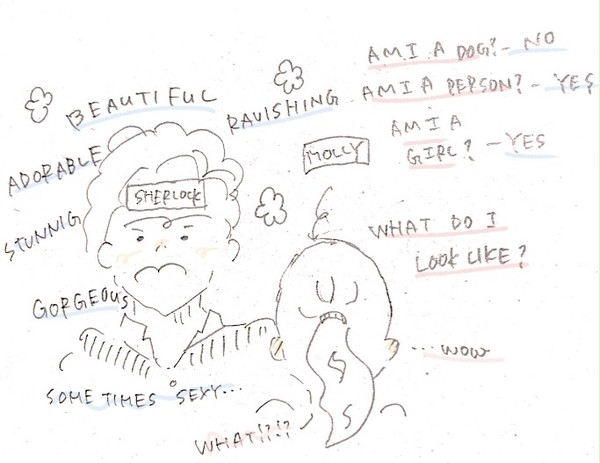 AM I A DOG? - NO
BEAUTIFUL
RAVISHING
AM I A PERSON? - YES
ADORABLE
AM I A
GIRL? - YES
MOLLY
SHERLOCK
STUNNIG
WHAT DO I
LOOK LIKE?
GORGEOUS
...WOW
SOME TIMES SEXY...
WHAT!?!?